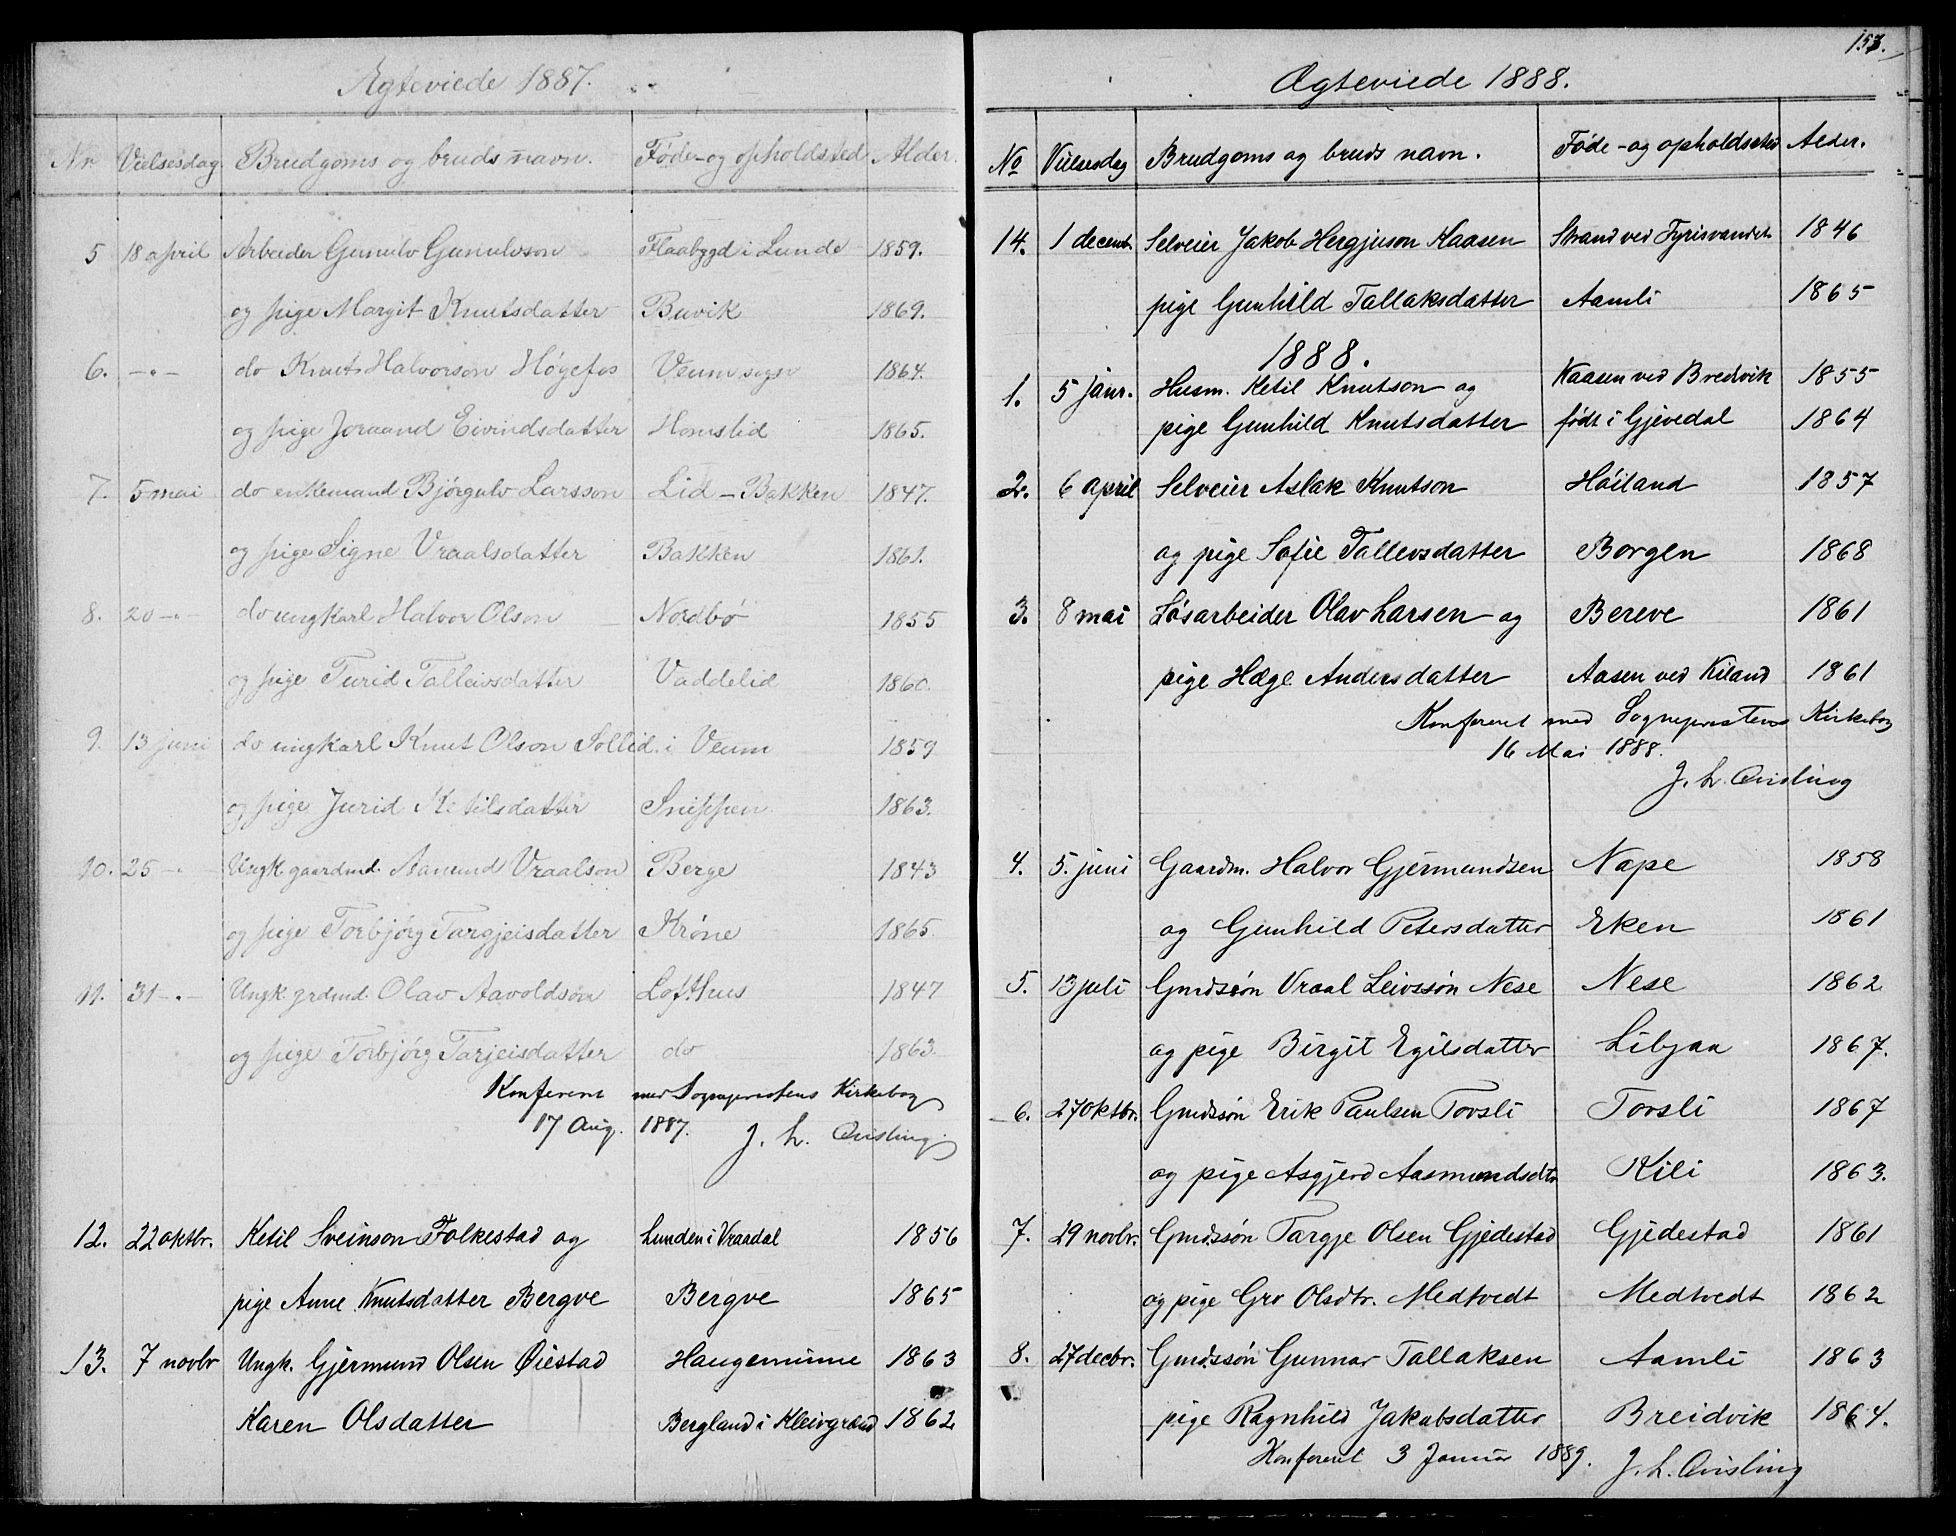 Ægteviede 1887.
Nr Vielsesdag Brudgoms og bruds navn. Føde- og opholdsted Alder.
5 18 april Arbeider Gunulv Gunulvson Flaabygd i Lunde 1859.
og pige Margit Knutsdatter Buvik 1869.
6. -"- do Knut Halvorson Høgefos Veum sogn 1864.
og pige Joraand Eivindsdatter Homslid 1865.
7. 5 mai do enkemand Bjørgulv Larsson Lid - Bakken 1847.
og pige Signe Vraalsdatter Bakken 1861.
8. 20 -"- do ungkarl Halvor Olson Nordbø 1855
og pige Turid Talleivsdatter Vaddelid 1860.
9. 13 juni do ungkarl Knut Olson Sollid i Veum 1859
og pige Jurid Ketilsdatter Snippen 1863.
10. 25 -"- Ungk. gaardmd. Aanund Vraalson Berge 1843
og pige Torbjørg Targjeisdatter Krone 1865.
11. 31 -"- Ungk. grdmd. Olav Aavoldson Lofthus 1847
og pige Torbjørg Tarjeisdatter do 1863.
Konfereret med Sogneprestens Kirkebog
17 Aug. 1887. J. L. Qvisling
12. 22 oktbr. Ketil Sveinson Folkestad og Lunden i Vraadal 1856
pige Anne Knutsdatter Bergve Bergve 1865
13. 7 novbr Ungk. Gjermund Olsen Øiestad Haugeminne 1863
Karen Olsdatter Bergland i Kleivgrænd 1862
153.
Ægteviede 1888.
No Vielsesdag Brudgoms og bruds navn. Føde- og opholdssted Alder.
14. 1 decemb. Selveier Jakob Hergjuson Kaasen Strand ved Fyrisvandet 1846
pige Gunhild Tallaksdatter Aamli 1865
1888.
1. 5 janr. Husm. Ketil Knutson og Kaasen ved Bredvik 1855
pige Gunhild Knutsdatter født i Gjevedal 1864
2. 6 april Selveier Aslak Knutson Høiland 1857
og pige Sofie Tallevsdatter Borgen 1868
3. 8 mai Løsarbeider Olav Larsen og Bereve 1861
pige Hæge Andersdatter Aasen ved Kiland 1861
Konfereret med Sogneprestens Kirkebog
16 Mai 1888.
J. L. Qvisling
4. 5. juni Gaardm. Halvor Gjermundsen Nape 1858
og Gunhild Petersdatter Eken 1861
5. 13 juli Gmdssøn Vraal Leivssøn Nese Nese 1862
og pige Birgit Egilsdatter Libjaa 1867.
6. 27 oktbr. Gmdssøn Erik Paulsen Tovsli Tovsli 1867
og pige Asgjerd Aasmundsdtr Kili 1863.
7. 29 novbr. Gmdssøn Targje Olsen Gjedestad Gjedestad 1861
og pige Gro Olsdtr. Medtvedt Medtvedt 1862
8. 27 decbr. Gmdssøn Gunnar Tallaksen Aamli 1863
pige Ragnhild Jakobsdatter Breidvik 1864.
Konfereret 3 Januar 1889. J. L. Qvisling